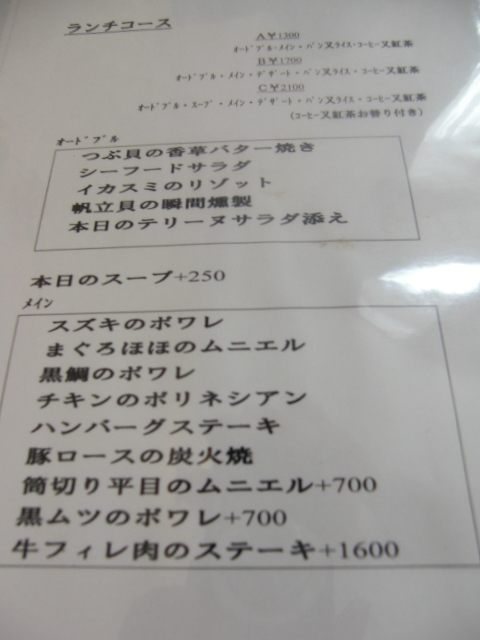 ランチコース
A¥1300
オードブル・メイン・パン又ライス・コーヒー又紅茶
B¥1700
オードブル・メイン・デザート・パン又ライス・コーヒー又紅茶
C¥2100
オードブル・スープ・メイン・デザート・パン又ライス・コーヒー又紅茶
(コーヒー又紅茶お替り付き)
オードブル
つぶ貝の香草バター焼き
シーフードサラダ
イカスミのリゾット
帆立貝の瞬間燻製
本日のテリーヌサラダ添え
本日のスープ+250
メイン
スズキのポワレ
まぐろほほのムニエル
黒鯛のポワレ
チキンのポリネシアン
ハンバーグステーキ
豚ロースの炭火焼
筒切り平目のムニエル+700
黒ムツのポワレ+700
牛フィレ肉のステーキ+1600